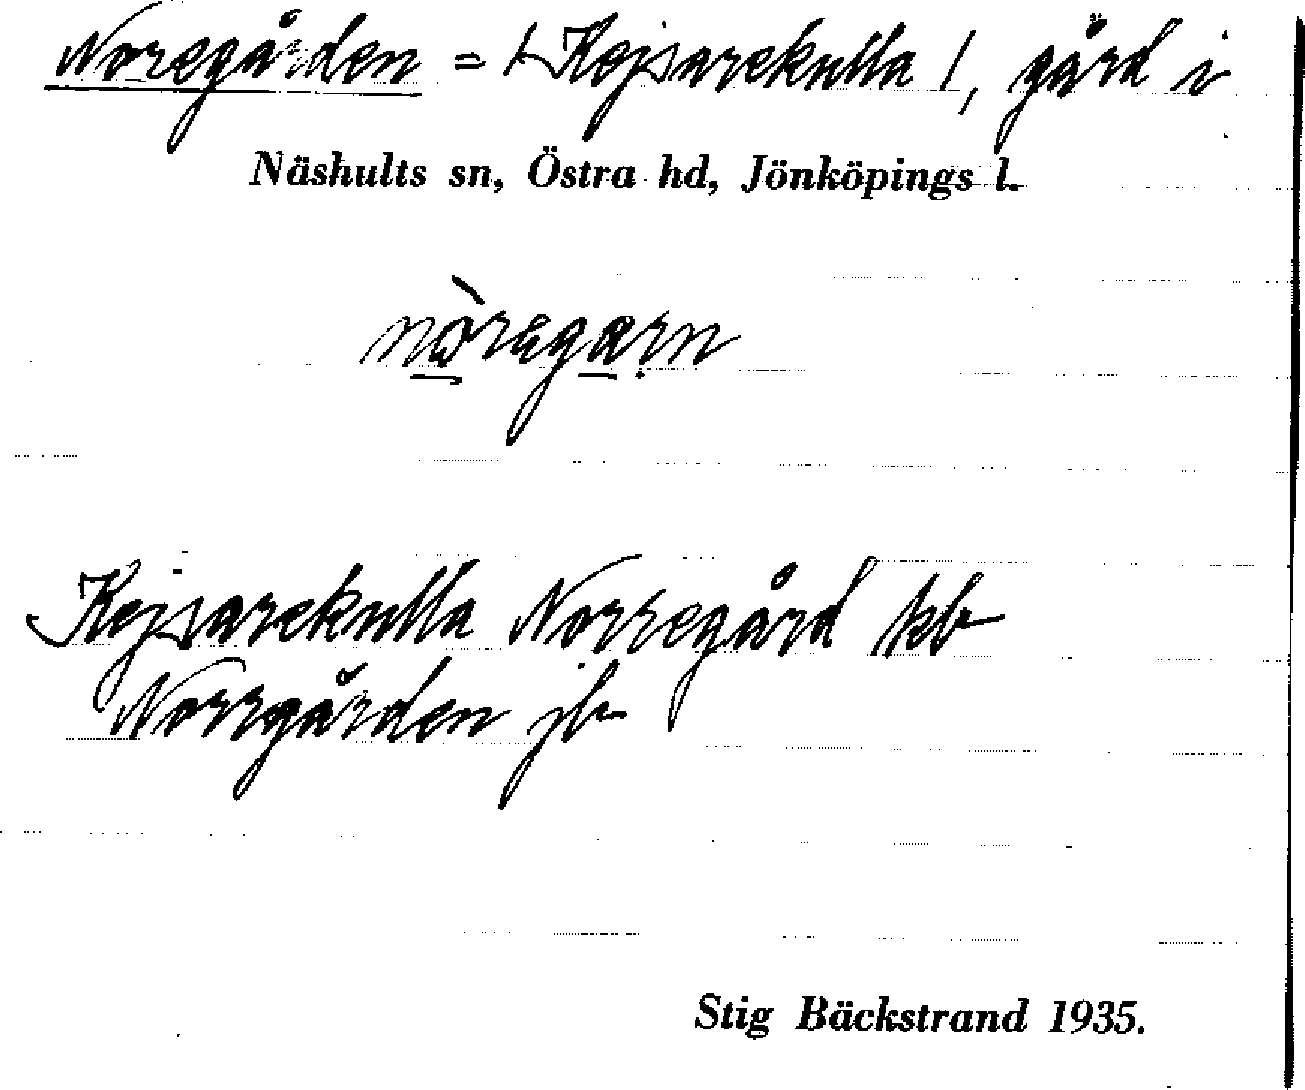 Noregården = /Kejsarekulla/, gård i
Näshults sn, Östra hd, Jönköpings l.
nòregarn
Kejsarekulla Norregård kb
Norrgården jb
Stig Bäckstrand 1935.